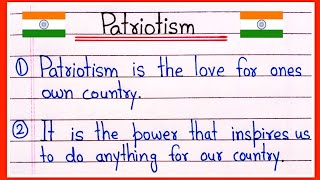 Patriotism
① Patriotism is the love for ones
own country.
② It is the power that inspires us
to do anything for our country.